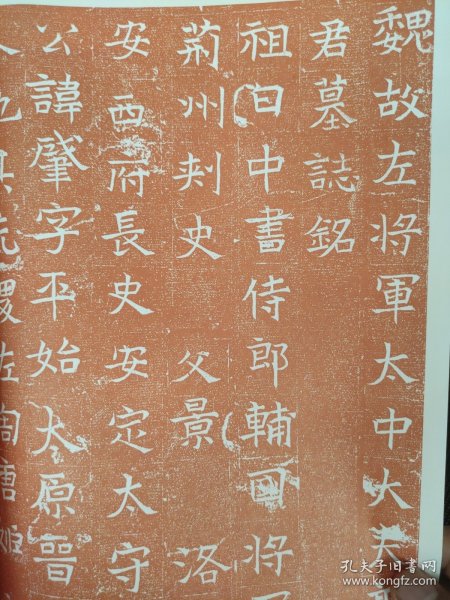 魏故左将軍太中大夫
君墓誌銘
祖曰中書侍郎輔國将
荊州刾史 父景 洛
安西府長史安定太守
公諱肇字平始太原晉
也其先
孔夫子旧书网
www.kongfz.com